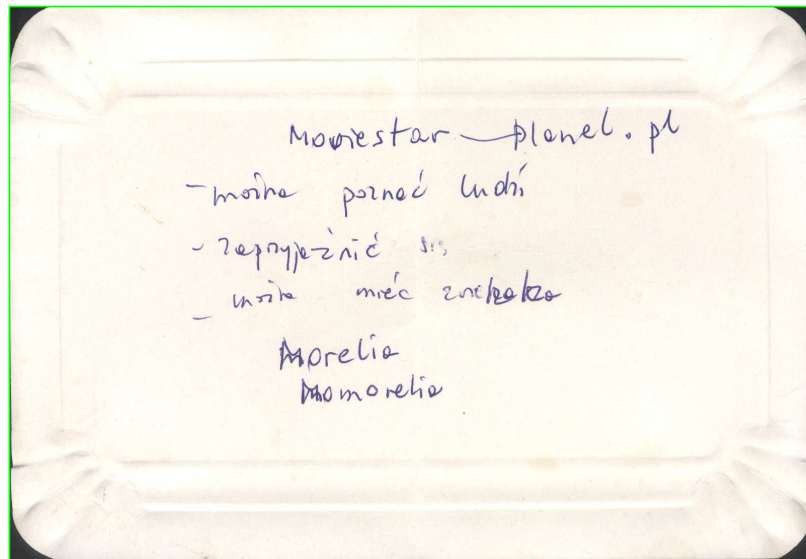 Moviestar planet.pl
- można poznać ludzi
- zaprzyjaźnić się
- można mieć
Morelia
Momorelia